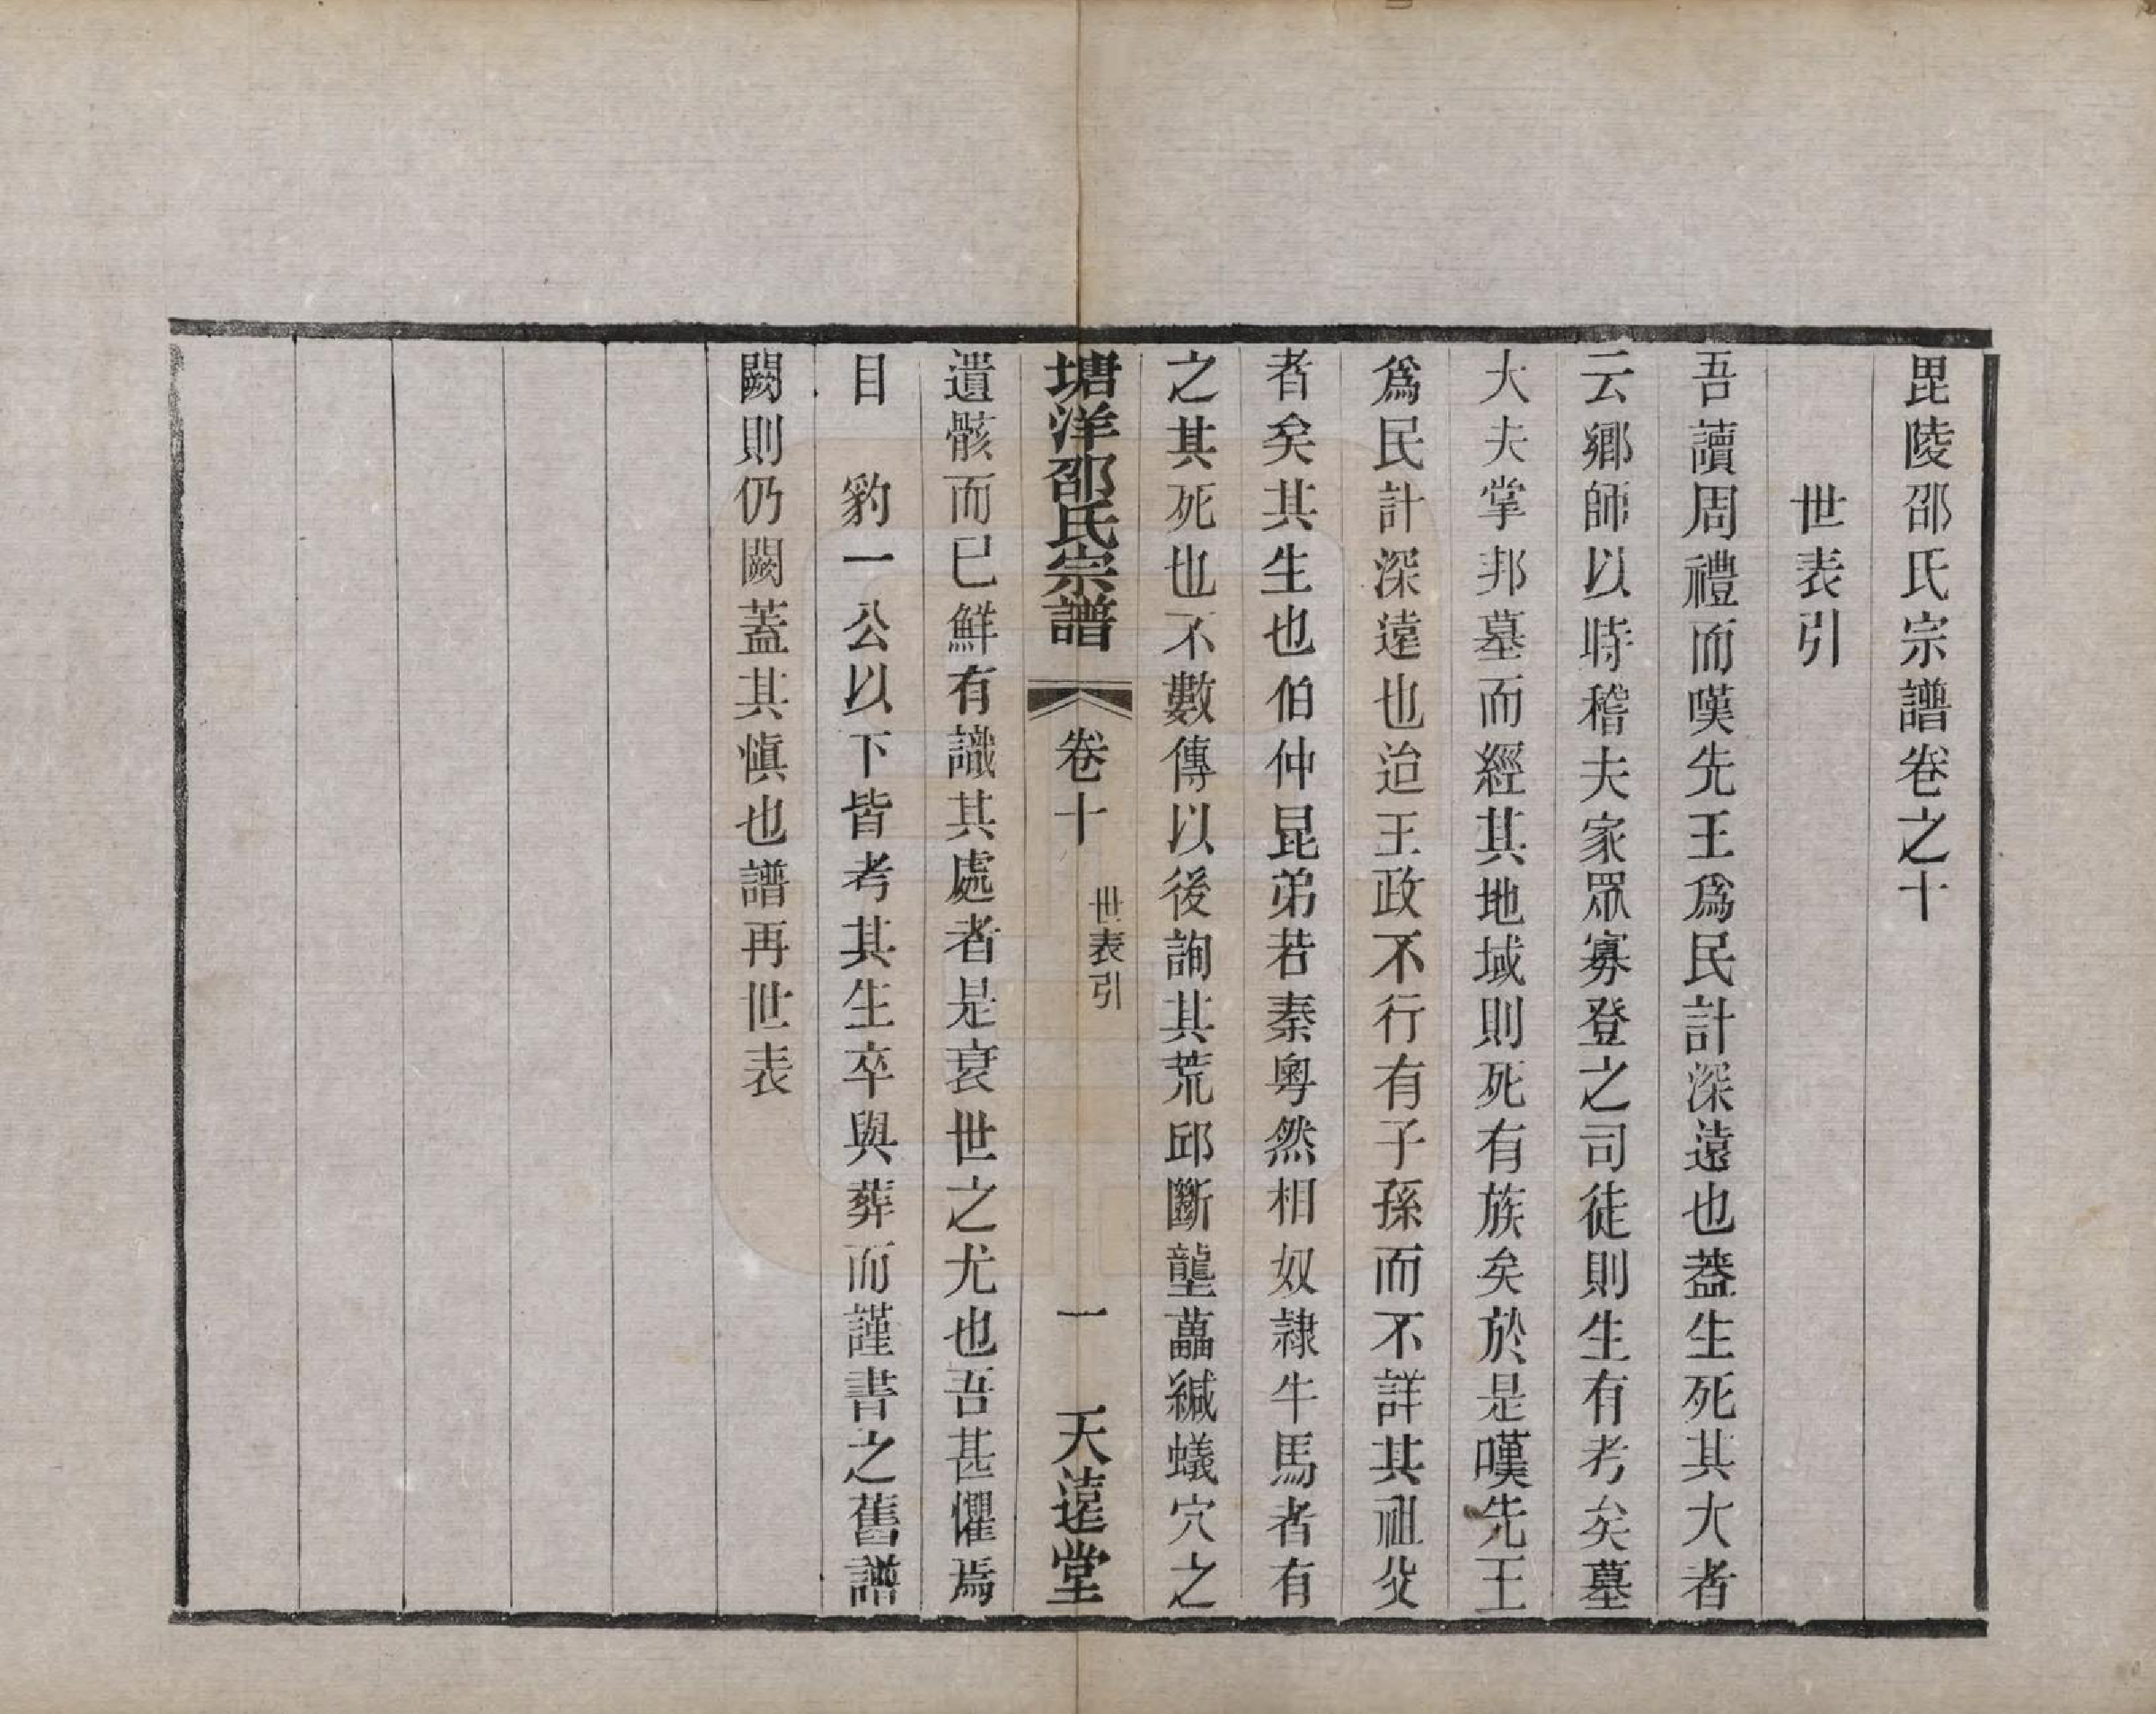 毘陵邵氏宗譜卷之十
世表引
吾讀周禮而嘆先王爲民計深遠也葢生死其大者
云鄉師以時稽夫家眾寡登之司徒則生有考矣墓
大夫掌邦墓而經其地域則死有族矣於是嘆先王
爲民計深遠也迨王政不行有子孫而不詳其祖父
者矣其生也伯仲昆弟若秦粵然相奴隸牛馬者有
之其死也不數傳以後詢其荒邱斷壟蘽緘蟻穴之
塘洋邵氏宗譜 卷十 世表引 一 天遠堂
遺骸而已鮮有識其處者是衰世之尤也吾甚懼焉
目 豹一公以下皆考其生卒與葬而謹書之舊譜
闕則仍闕蓋其愼也譜再世表